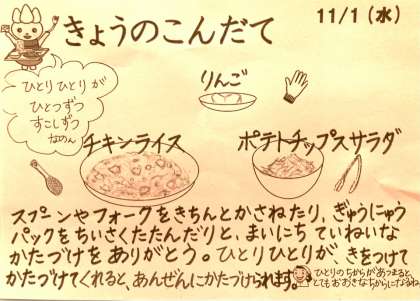 きょうのこんだて
11/1(水)
ひとりひとりが
ひとつずつ
すこしずつ
なのん
りんご
チキンライス
ポテトチップスサラダ
スプーンやフォークをきちんとかさねたり、ぎゅうにゅう
パックをちいさくたたんだりと、まいにち ていねいな
かたづけを ありがとう。ひとりひとりが、きをつけて
かたづけてくれると、あんぜんにかたづけられます。
ひとりのちからがあつまると
とてもおおきなちからになるね